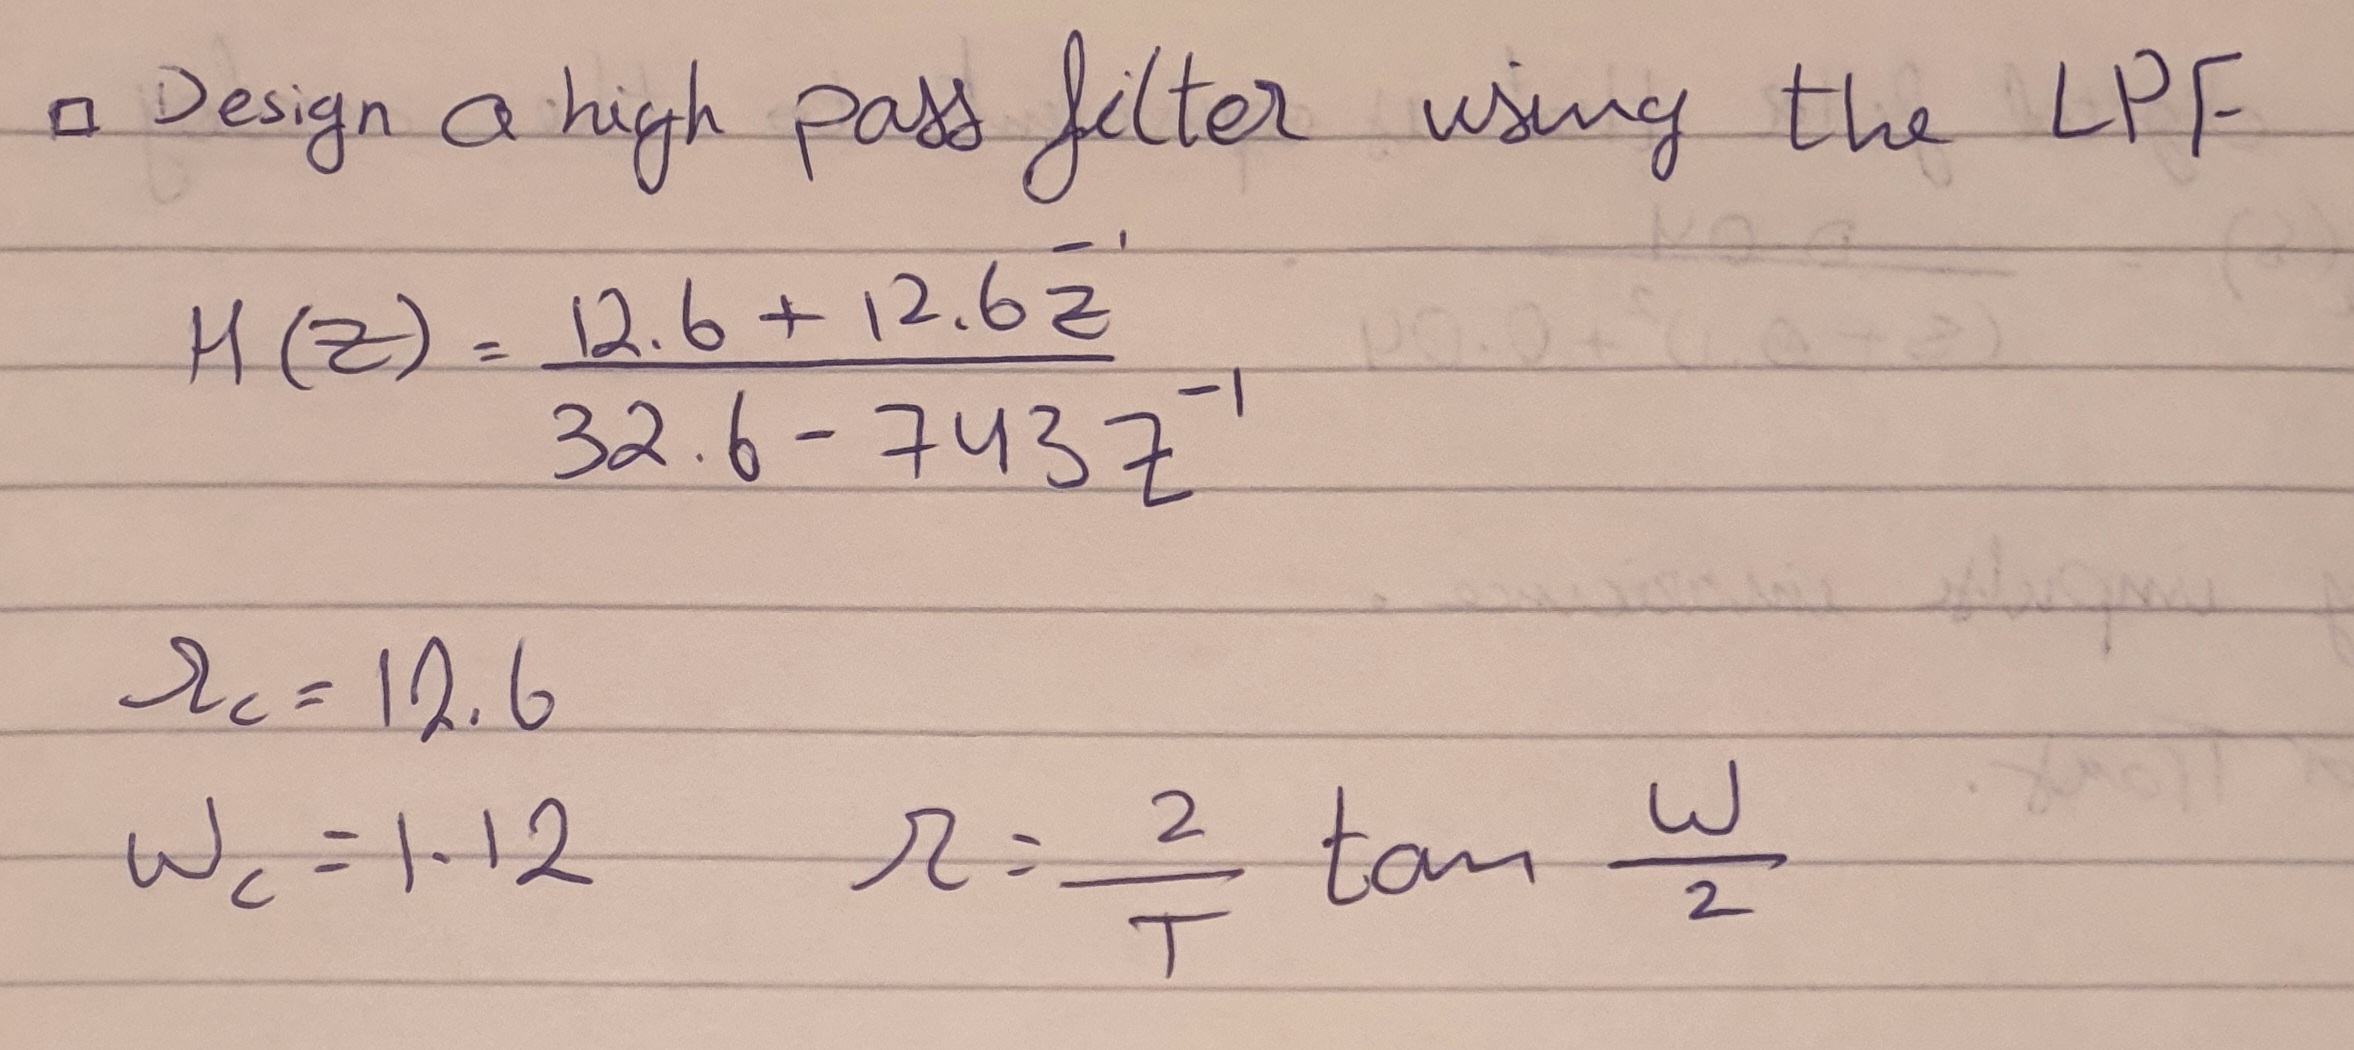 □ Design a high pass filter using the LPF
H(z) = (12.6 + 12.6z⁻¹) / (32.6 - 743z⁻¹)
Ωc = 12.6
ωc = 1.12    Ω = 2/T tan ω/2